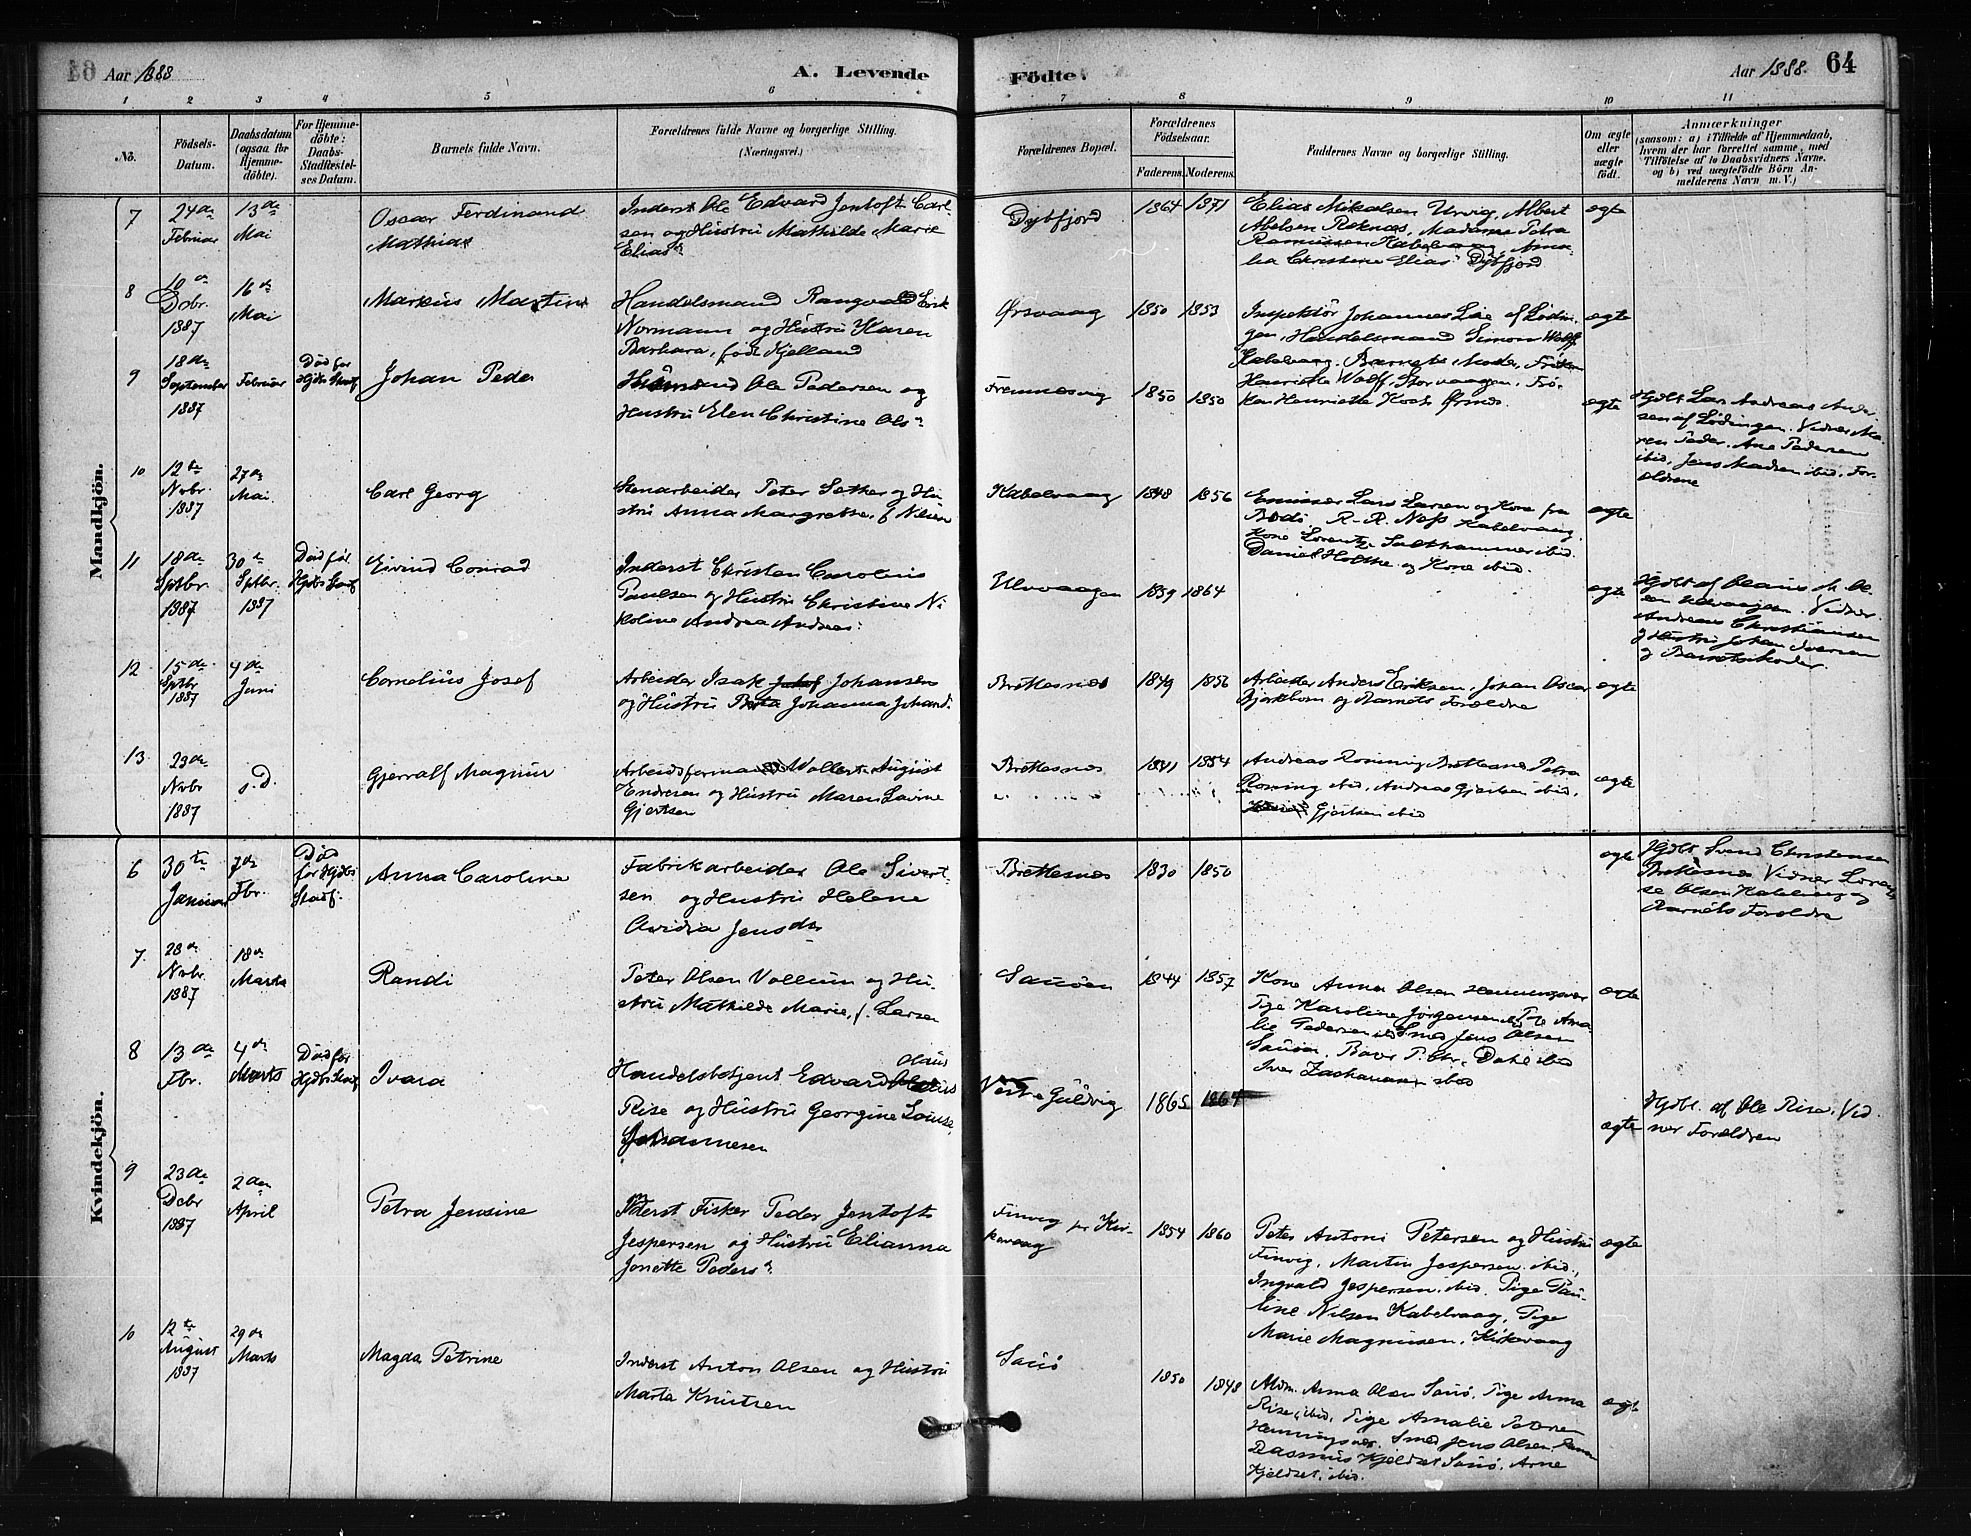 Aar 1888
A. Levende
Fødte.
Aar 1888. 64
1 2 3 4 5 6 7 8 9 10 11
No.
Fødsels-
Datum.
Daabsdatum
(ogsaa for
Hjemme-
døbte).
For Hjemme-
døbte:
Daabs-
Stadfæstel-
ses Datum.
Barnets fulde Navn.
Forældrenes fulde Navne og borgerlige Stilling.
(Næringsvei.)
Forældrenes Bopæl.
Forældrenes
Fødselsaar.
Faderens. Moderens.
Faddernes Navne og borgerlige Stilling.
Om ægte
eller
uægte
født.
Anmærkninger
(saasom: a) i Tilfælde af Hjemmedaab,
hvem der har forrettet samme, med
Tilføielse af to Daabsvidners Navne.
og b) ved uægtefødte Børn An-
melderens Navn m. V.)
Mandkjön.
7
24de
Februar
13de
Mai
Oscar Ferdinand
Mathias
Inderst Ole Edvard Jentoft Carl-
sen og Hustru Mathilde Marie
Elias
Dybfjord
1864 1871
Elias Mikalsen Urvig, Albert
Abelsen Reknæs, Madame Petra
Rasmussen Kabelvaag, Ama-
lia Christine Elias Dybfjord
ægte
8
10de
Decbr.
1887
16de
Mai
Markus Martin
Handelsmand Rangvald Erik
Normann og Hustru Karen
Barbara, født Kjelland
Ørsvaag
1850 1853
Inspektør Johannes Lie af Lødin-
gen, Handelsmand Simon Wolff
Kabelvaag. Barnets Moder, Frøken
Henriette Wolff, Storvaagen. Frø-
ken Henriette Koch Ørsnes.
ægte
9
18de
September
1887
Februar
Død før
Hjdbs Stadf
Johan Peder
Ole Pedersen og
Hustru Elen Christine Ols
1850 1850
ægte
Hjdbt Lars Andreas Ander-
sen af Lødingen. Vidner Ma-
ren Peder. Ane Pedersen
ibid, Jens Madsen ibid. For-
ældrene
10
12te
Nvbr.
1887
27de
Mai
Carl Georg
Stenarbeider Peter Sether og Hu-
stru Anna Margrethe, f Nilsen
Kabelvaag
1848 1856
Emisser Lars Larsen og Kone fra
Bodø. R. R. Næss Kabelvaag.
Kone Lorentze Salthammer ibid.
Daniel Holthe og Kone ibid.
ægte
11
18de
Sptbr.
1887
30te
Sptbr.
1887
Død før
Hjdbs Stadf
Eivind Conrad
Inderst Christen Carolius
Paulsen og Hustru Christine Ni-
koline Andrea Andreas
Ulvvaagen
1859 1864
ægte
Hjdbt af Olaus M. Ol-
sen Ulvvaagen. Vidner
Andreas Christiansen
og Hustru Johan Iversen
og Barnets Moder.
12
15de
Sptbr
1887
4de
Juni
Cornelius Josef
Arbeider Isak Johansen
og Hustru Johanna Johans
Brettesnes
1849 1856
Arbeider Anders Eriksen. Johan Oscar
Bjørkbom og Barnets Forældre
ægte
13
23de
Nvbr
1887
s. D.
Gjerralf Magnus
Arbeidsformand Wollert August
Endresen og Hustru Maren Lovine
Gjertsen
Brettesnes
1841 1854
Andreas Roning Brettesnes Petra
Roning ibid, Andreas Gjertsen ibid,
Gjertsen ibid
ægte
Kvindekjön.
6
30te
Januar
7de
Fbr.
Død
før Hjdbs
Stadf.
Anna Caroline
Fabrikarbeider Ole Sivert-
sen og Hustru Helene
Ovidia Jensdtr
Brettesnes
1830 1850
ægte
Hjdbt Svend Christensen
Brettesnes. Vidner Loren-
se Olsen Kabelvaag og
Barnets Forældre
7
28de
Nvbr.
1887
18de
Marts
Randi
Peter Olsen Vollum og Hu-
stru Mathilde Marie, f. Larsen
Sauøen
1844 1857
Kone Anna Olsen Henningsvær
Pige Karoline Jørgensen ib, Pige Ama-
lie Pedersen ib, Smed Jens Olsen
Sauøen. Baar P. Chr. Dahl ibid
Iver Zachariasen ibid
ægte
8
13de
Fbr.
4de
Marts
Død før
Hjdbs Stadf
Ivara
Handelsbetjent Edvard Olaus
Rise og Hustru Georgine Louise
Johannesen
Vestre Guldvig
1865 1864
ægte
Hjdbt. af Ole Rise. Vid-
ner Forældren
9
23de
Dcbr
1887
2den
April
Petra Jensine
Inderst Fisker Peder Jentoft
Jespersen og Hustru Elianna
Jonette Peders
Finvig pr Kir-
kevaag
1854 1860
Peter Antoni Petersen og Hustru
Finvig, Martin Jespersen ibid.,
Ingvald Jespersen, ibid. Pige Pau-
line Nilsen Kabelvaag, Pige
Marie Magnusen, Kirkevaag
ægte
10
12te
August
1887
29de
Marts
Magda Petrine
Inderst Anton Olsen og Hustru
Marta Knutsen
Sauø
1850 1848
Mdm. Anna Olsen Sauø, Pige Anna
Rise, ibid, Pige Amalie Peders
Henningsvær. Smed Jens Olsen.
Rasmus Kjeldset Sauø, Arne
Kjeldset, ibid.
ægte